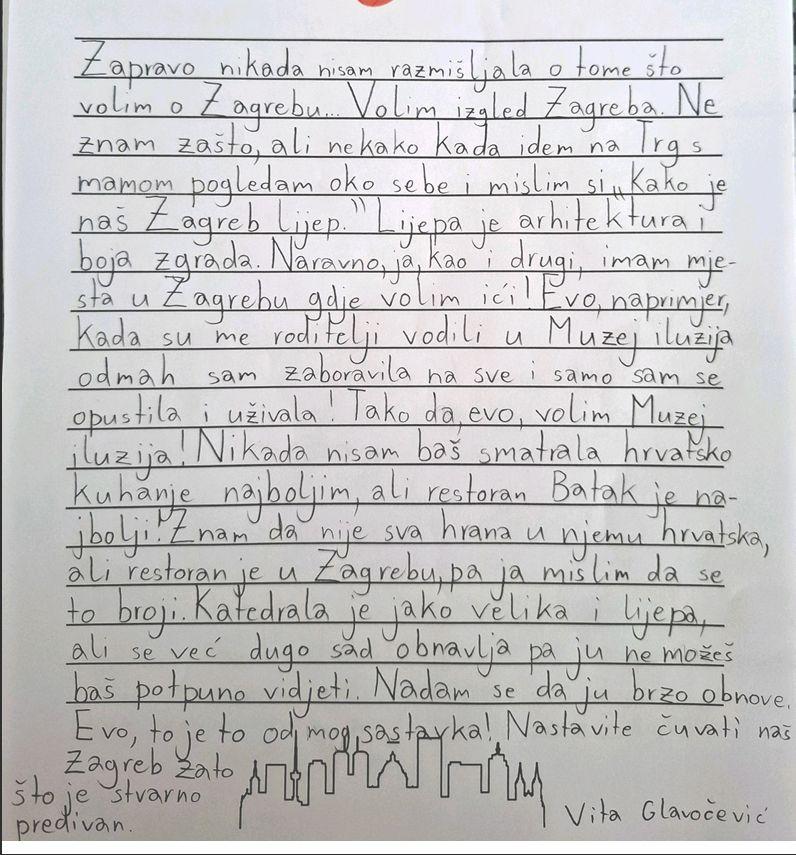 Zapravo nikada nisam razmišljala o tome što
volim o Zagrebu... Volim izgled Zagreba. Ne
znam zašto, ali nekako kada idem na Trg s
mamom pogledam oko sebe i mislim si „Kako je
naš Zagreb lijep.” Lijepa je arhitektura i
boja zgrada. Naravno, ja, kao i drugi, imam mje-
sta u Zagrebu gdje volim ići! Evo, naprimjer,
kada su me roditelji vodili u Muzej iluzija
odmah sam zaboravila na sve i samo sam se
opustila i uživala! Tako da, evo, volim Muzej
iluzija! Nikada nisam baš smatrala hrvatsko
kuhanje najboljim, ali restoran Batak je na-
jbolji! Znam da nije sva hrana u njemu hrvatska,
ali restoran je u Zagrebu, pa ja mislim da se
to broji. Katedrala je jako velika i lijepa,
ali se već dugo sad obnavlja pa ju ne možeš
baš potpuno vidjeti. Nadam se da ju brzo obnove.
Evo, to je to od mog sastavka! Nastavite čuvati naš
Zagreb zato
što je stvarno
predivan.
Vita Glavočević